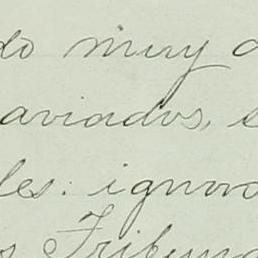 do muy a
aviados, e
les: ignora
s Tribuna